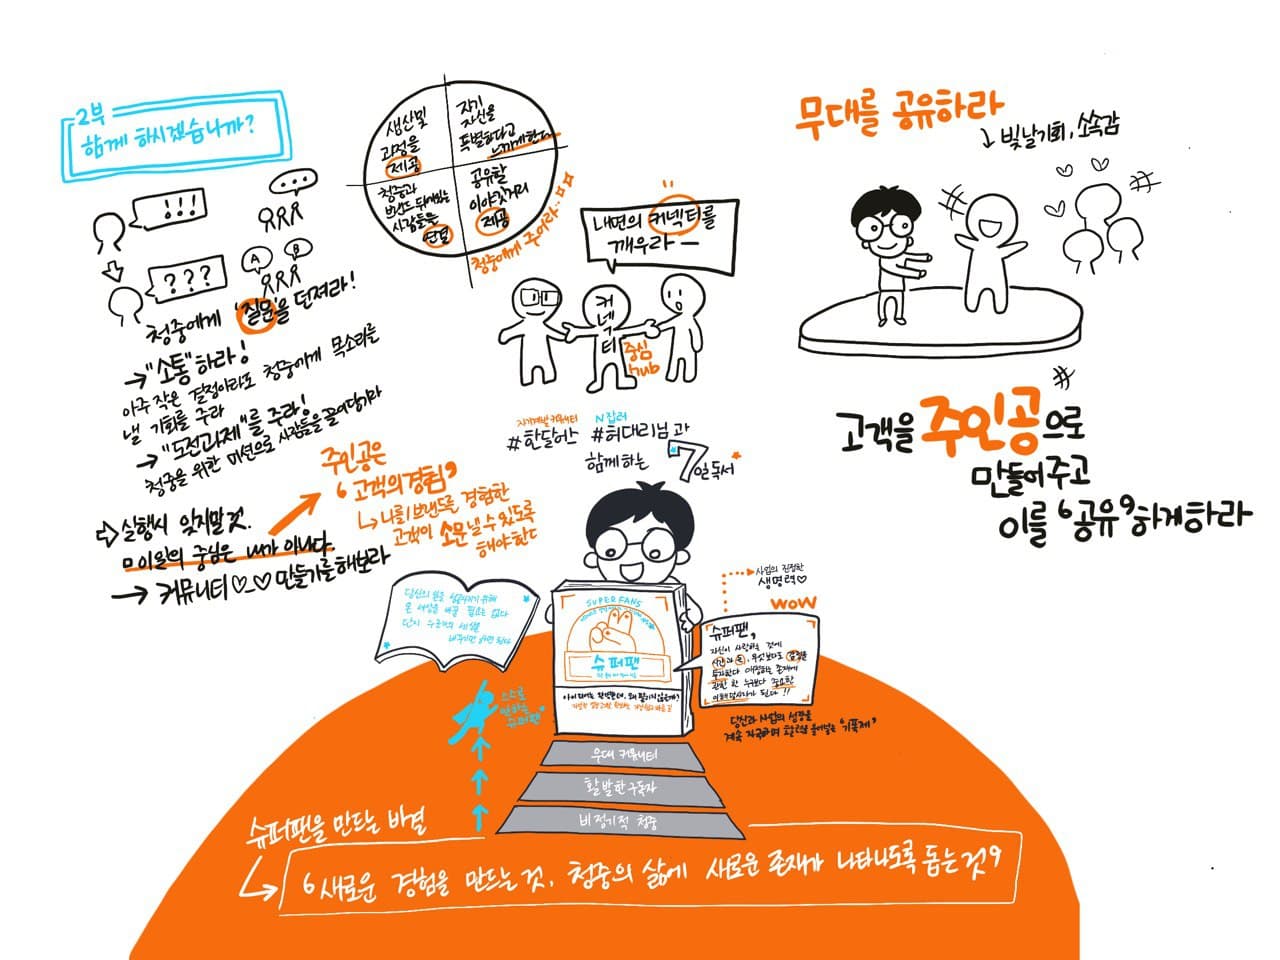 2부
함께 하시겠습니까?
!!!
...
???
A
B
청중에게 '질문'을 던져라!
→ "소통"하라!
아주 작은 결정이라도 청중에게 목소리를
낼 기회를 주라
→ "도전과제"를 주라!
청중을 위한 미션으로 사람들을 끌어당기라
⇨ 실행시 잊지말 것.
이 일의 중심은 내가 아니다.
→ 커뮤니티 만들기를 해보라
주인공은
'고객의 경험'
↳ 나를/브랜드를 경험한
고객이 소문낼 수 있도록
해야한다
생산 및
과정을
제공
자기
자신을
특별하다고
느끼게 한다
청중과
브랜드 뒤에 있는
사람들을
연결
공유할
이야깃거리
제공
청중에게 주어라..
내면의 커넥터를
깨우라 —
커넥터
중심
hub
자기계발 커뮤니티
#한달어스
N잡러
#허대리님과
함께하는
7일 독서
무대를 공유하라
↳ 빛날 기회, 소속감
고객을 주인공으로
만들어주고
이를 '공유'하게 하라
당신의 일을 성공시키기 위해
온 세상을 바꿀 필요는 없다
단지 누군가의 세상을
바꾸기만 하면 된다
SUPERFANS
슈퍼팬
사업의 진정한
생명력♡
WOW
슈퍼팬,
자신이 사랑하는 것에
시간과 돈, 무엇보다도 감정을
투자한다
관한 한 누구보다 중요한
이해당사자가 된다!!
당신과 사업의 성장을
계속 자극하며 활력을 불어넣는 '기폭제'
스스로
변하는
슈퍼팬
열대 커뮤니티
활발한 구독자
비정기적 청중
슈퍼팬을 만드는 비결
↳ '새로운 경험을 만드는 것, 청중의 삶에 새로운 존재가 나타나도록 돕는 것'